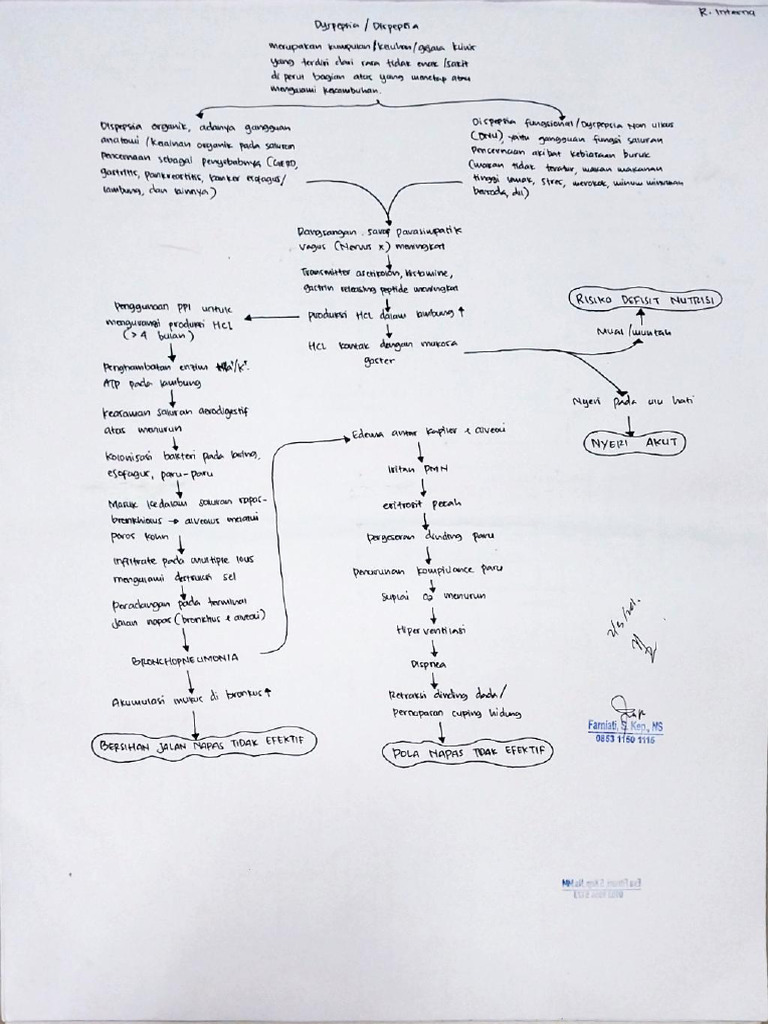 R. Interna
Dyspepsia / Dispepsia
merupakan kumpulan/keluhan/gejala klinis
yang terdiri dari rasa tidak enak/sakit
di perut bagian atas yang menetap atau
mengalami kekambuhan.
Dispepsia organik, adanya gangguan
anatomi/kelainan organik pada saluran
pencernaan sebagai penyebabnya (GERD,
gastritis, pankreatitis, kanker esofagus/
lambung, dan lainnya)
Dispepsia fungsional/Dyspepsia Non Ulkus
(DNU), yaitu gangguan fungsi saluran
pencernaan akibat kebiasaan buruk
(makan tidak teratur, makan makanan
tinggi lemak, stres, merokok, minum minuman
bersoda, dll)
Rangsangan saraf parasimpatik
vagus (Nervus X) meningkat
Transmitter asetilkolin, histamine,
gastrin releasing peptide meningkat
produksi HCL dalam lambung ↑
HCL kontak dengan mukosa
gaster
Mual/muntah
RISIKO DEFISIT NUTRISI
Nyeri pada ulu hati
NYERI AKUT
Penggunaan PPI untuk
mengurangi produksi HCL
(>4 bulan)
Penghambatan enzim /K+
ATP pada lambung
Keasaman saluran aerodigestif
atas menurun
Kolonisasi bakteri pada
esofagus, paru-paru
Masuk kedalam saluran napas-
bronkhiolus → alveolus melalui
poros kohn
Infiltrate pada multiple
mengalami destruksi sel
Peradangan pada terminal
jalan napas (bronkhus & alveoli)
BRONCHOPNEUMONIA
Akumulasi mukus di bronkus ↑
BERSIHAN JALAN NAPAS TIDAK EFEKTIF
Edema antar kapiler & alveoli
Iritan PMN
eritrosit pecah
Pergeseran dinding paru
Penurunan komplulance paru
Suplai O2 menurun
Hiperventilasi
Dispnea
Retraksi dinding dada/
Pernapasan cuping hidung
POLA NAPAS TIDAK EFEKTIF
Farniati, S. Kep., NS
0853 1150 1115